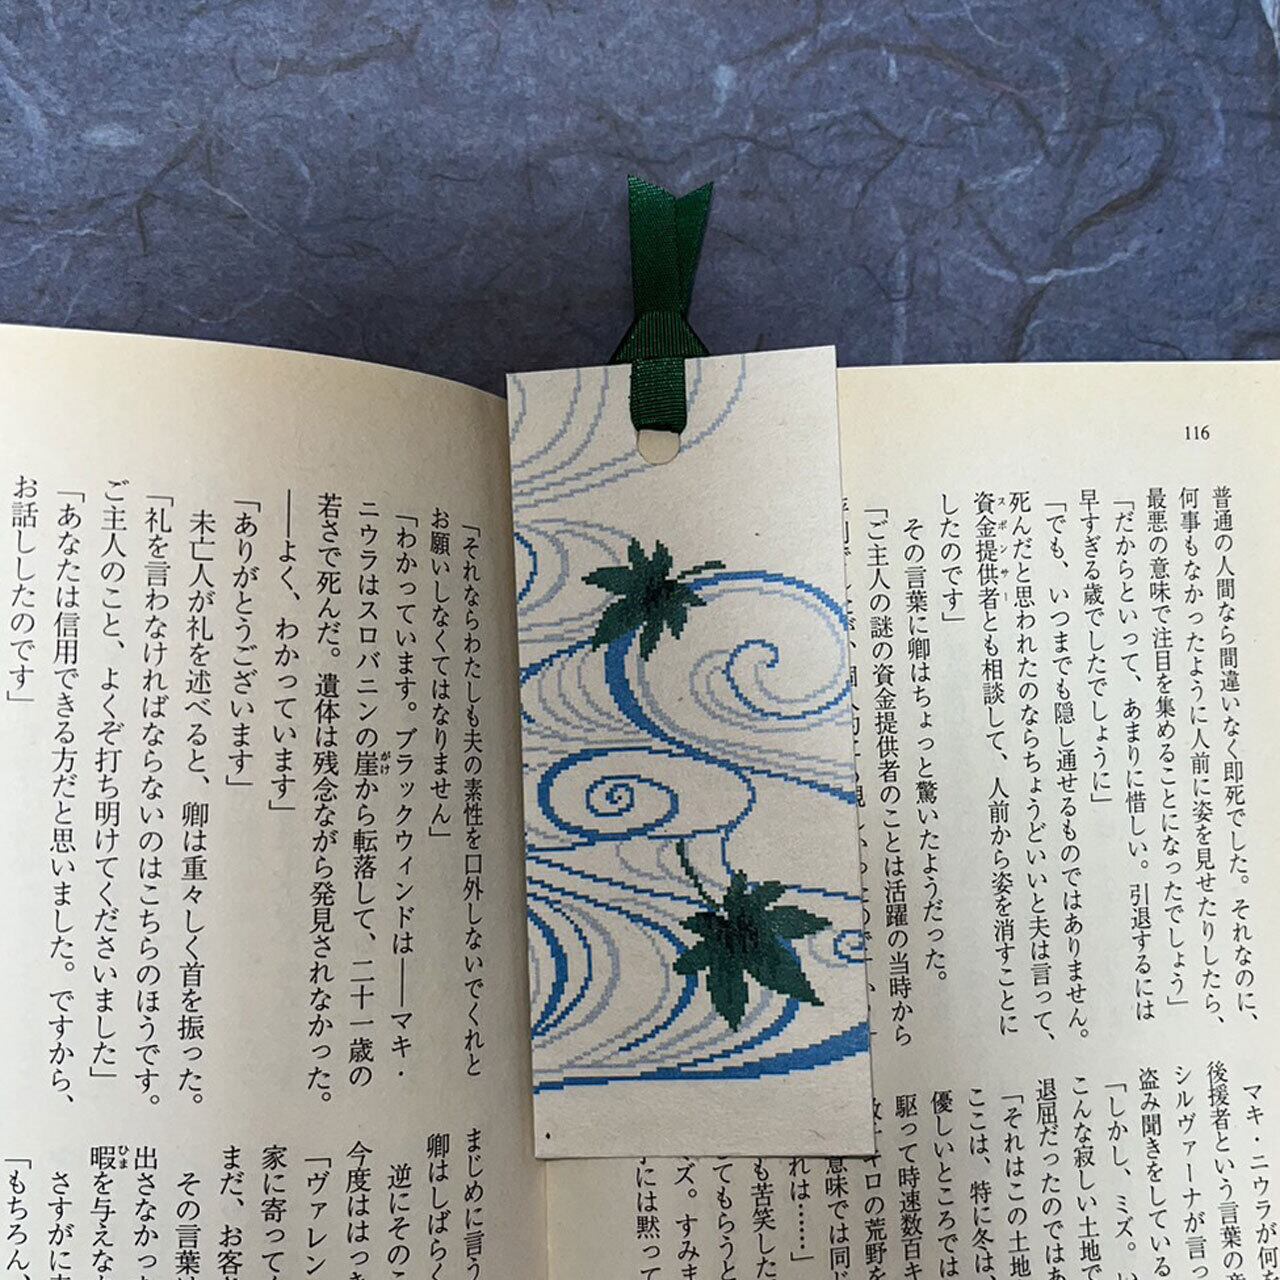 116
普通の人間なら間違いなく即死でした。それなのに、
何事もなかったように人前に姿を見せたりしたら、
最悪の意味で注目を集めることになったでしょう」
「だからといって、あまりに惜しい。引退するには
早すぎる歳でしたでしょうに」
「でも、いつまでも隠し通せるものではありません。
死んだと思われたのならちょうどいいと夫は言って、
資金提供者とも相談して、人前から姿を消すことに
スポンサー
したのです」
その言葉に卿はちょっと驚いたようだった。
「ご主人の謎の資金提供者のことは活躍の当時から
マキ・ニウラが何
後援者という言葉の
シルヴァーナが言っ
盗み聞きをしている
「しかし、ミズ。い
こんな寂しい土地で
退屈だったのではあ
「それはこの土地
ここは、特に冬は、
優しいところでは
駆って時速数百キ
キロの荒野を
意味では同じ
れは……」
も苦笑した
してもらうと
ズ。すみま
には黙って
「それならわたしも夫の素性を口外しないでくれと
お願いしなくてはなりません」
「わかっています。ブラックウィンドは――マキ・
ニウラはスロバニンの崖から転落して、二十一歳の
がけ
若さで死んだ。遺体は残念ながら発見されなかった。
――よく、わかっています」
「ありがとうございます」
未亡人が礼を述べると、卿は重々しく首を振った。
「礼を言わなければならないのはこちらのほうです。
ご主人のこと、よくぞ打ち明けてくださいました」
「あなたは信用できる方だと思いました。ですから、
お話ししたのです」
まじめに言う
卿はしばらく
逆にそのこ
今度ははっき
「ヴァレン
家に寄ってく
まだ、お客
その言葉は
出さなかった
暇を与えな
ひま
さすがに
「もちろん、